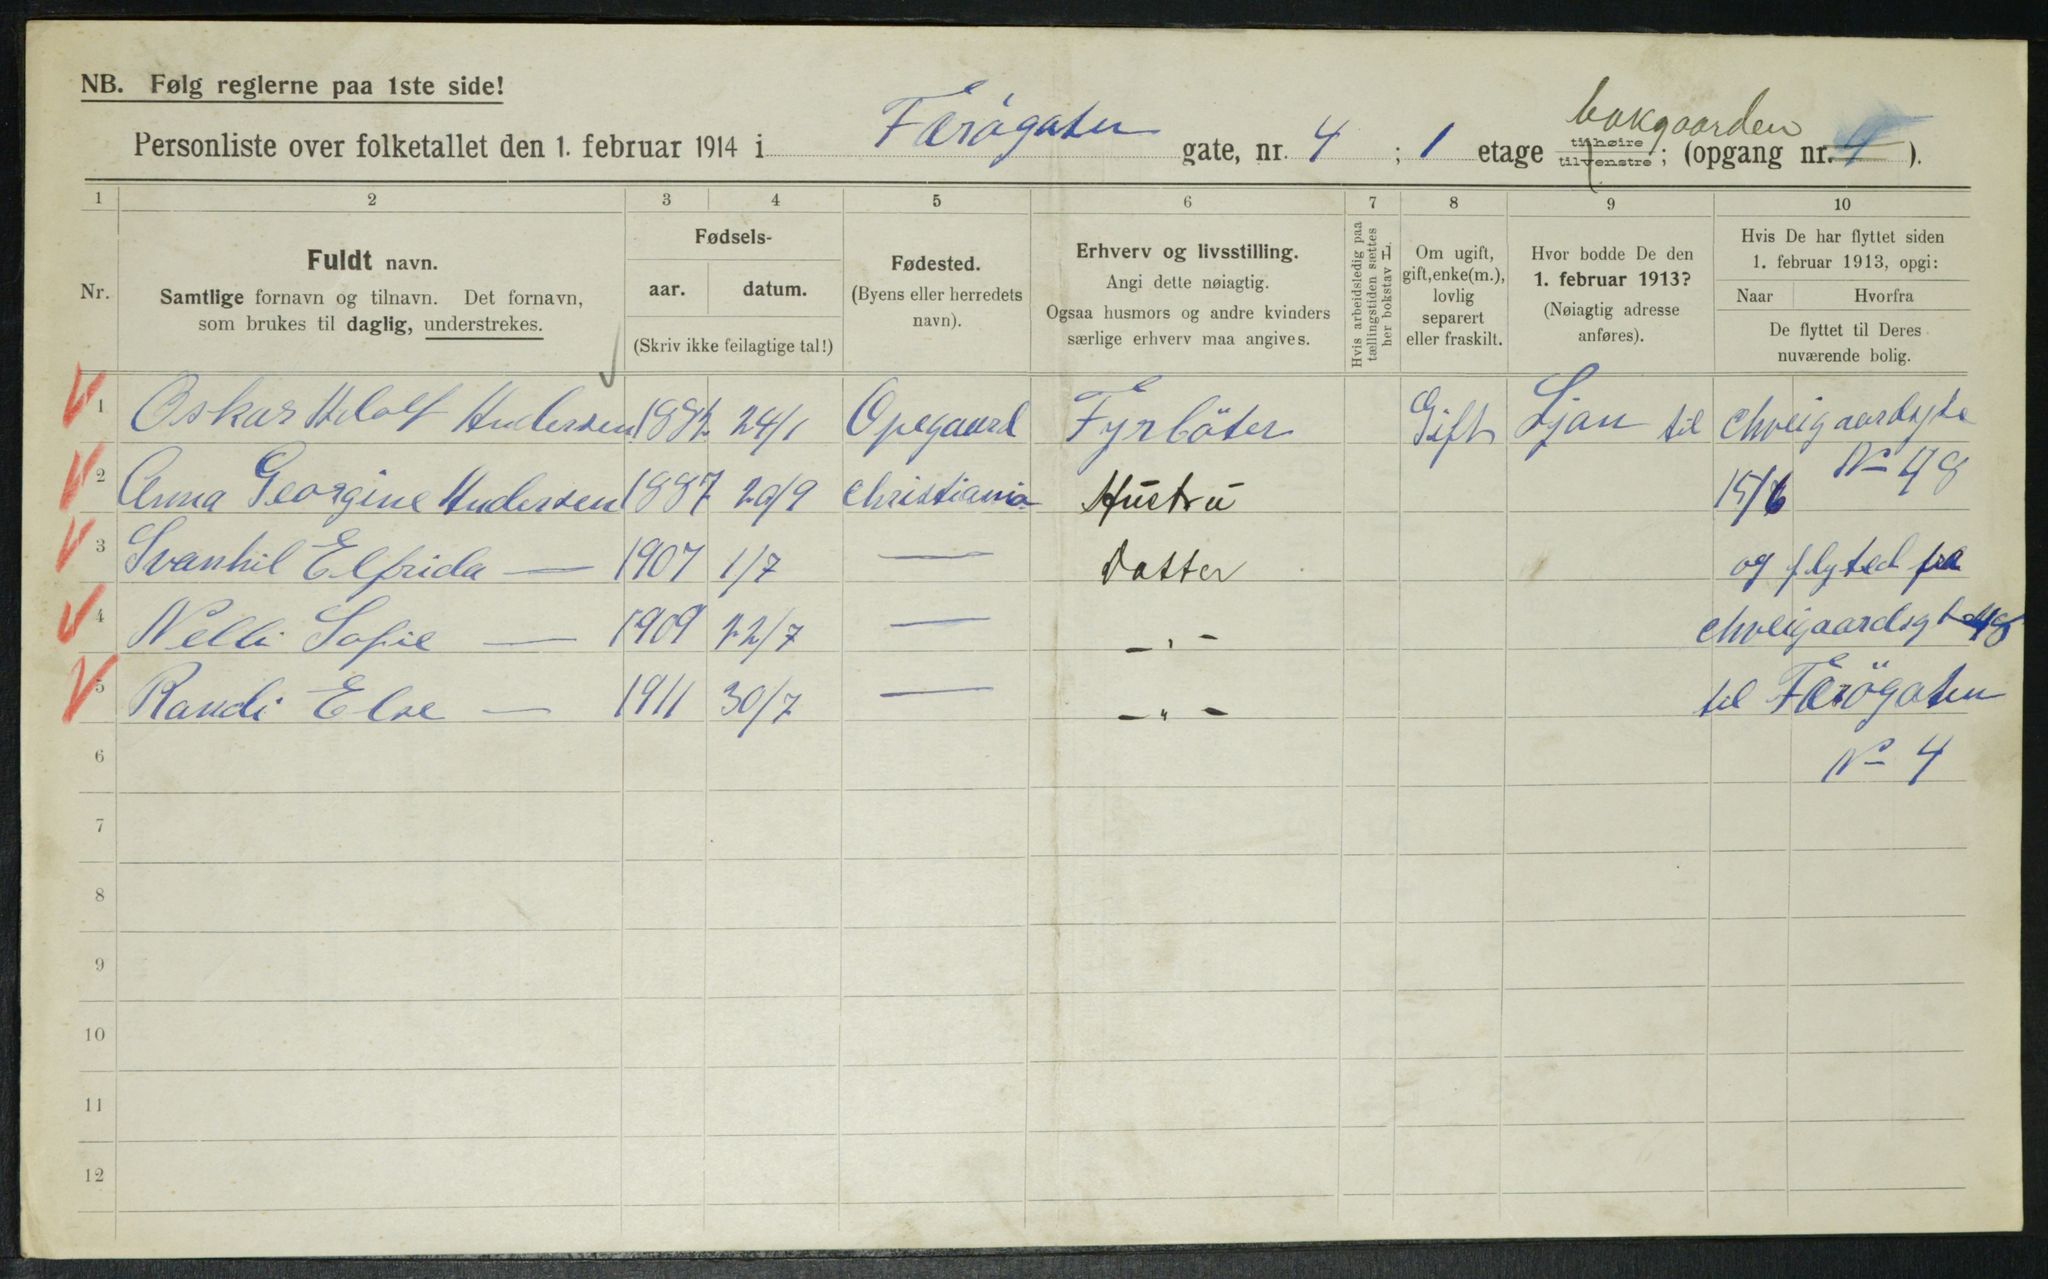 NB. Følg reglerne paa 1ste side!
bakgaarden
Personliste over folketallet den 1. februar 1914 i Færögaten gate, nr. 4 ; 1 etage til høire / til venstre ; (opgang nr. 4 ).
1 2 3 4 5 6 7 8 9 10
Nr.
Fuldt navn.
Samtlige fornavn og tilnavn. Det fornavn,
som brukes til daglig, understrekes.
Fødsels-
aar. datum.
(Skriv ikke feilagtige tal!)
Fødested.
(Byens eller herredets
navn).
Erhverv og livsstilling.
Angi dette nøiagtig.
Ogsaa husmors og andre kvinders
særlige erhverv maa angives.
Hvis arbeidsledig paa
tællingstiden sættes
her bokstav L.
Om ugift,
gift, enke(m.),
lovlig
separert
eller fraskilt.
Hvor bodde De den
1. februar 1913?
(Nøiagtig adresse
anføres).
Hvis De har flyttet siden
1. februar 1913, opgi:
Naar Hvorfra
De flyttet til Deres
nuværende bolig.
1 Oskar Adolf Andersen 1882 24/1 Opegaard Fyrböter Gift Ljan til chveigaardsgte
No 48
2 Anna Georgine Andersen 1887 29/9 Christiania Hustru 15/6
3 Svanhil Elfrida — 1907 1/7 — Datter og flyted fra
4 Nelli Sofie — 1909 22/7 — -"- chveigaardsgt 48
5 Randi Else — 1911 30/7 — -"- til Færögaten
6 No 4
7
8
9
10
11
12